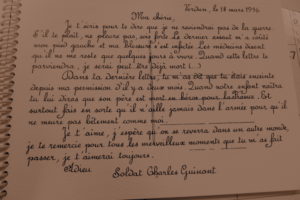 Verdun, le 18 mars 1916
Mon chérie,
Je t'écris pour te dire que je ne reviendrai pas de la guerre.
S'il te plaît, ne pleure pas, sois forte. Le dernier assaut m'a coûté
mon pied gauche et ma blessure s'est infectée. Les médecins disent
qu'il ne me reste que quelques jours à vivre. Quand cette lettre te
parviendra, je serai peut-être déjà mort (...)
Dans ta dernière lettre, tu m'as dit que tu étais enceinte
depuis ma permission d'il y a deux mois. Quand notre enfant naîtra
tu lui diras que son père est mort en héros pour la France. Et
surtout fais en sorte qu'il n'aille jamais dans l'armée pour qu'il
ne meure pas bêtement comme moi.
Je t'aime, j'espère qu'on se reverra dans un autre monde,
je te remercie pour tous les merveilleux moments que tu m'as fait
passer, je t'aimerai toujours.
Adieu
Soldat Charles Guinant